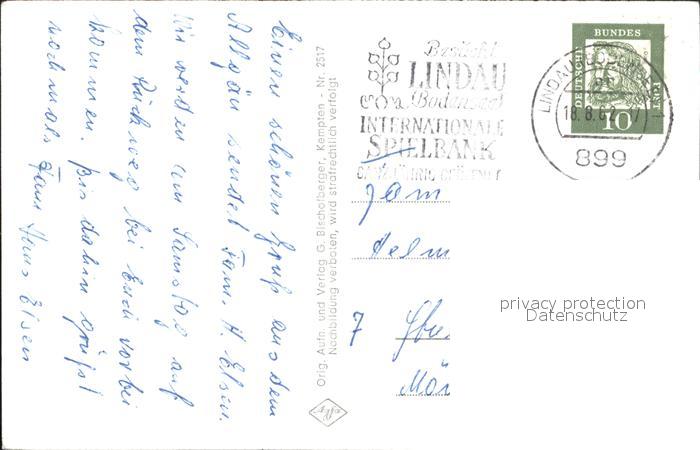 Einen schönen Gruß aus dem
Allgäu sendet Fam. H. Elsen.
Wir werden am Samstag auf
dem Rückweg bei Euch vorbei
kommen. Bis dahin grüßt
nochmals Fam Hans Elsen
Orig. Aufn. und Verlag G. Bischofberger, Kempten - Nr. 2517
Nachbildung verboten, wird strafrechtlich verfolgt
Besucht
LINDAU
Bodensee
INTERNATIONALE
SPIELBANK
GANZJÄHRIG GEÖFFNET
LINDAU (BODENSEE)
18.8.62
899
DEUTSCHE
BUNDES
POST
10
Fam
Helm
7
Mör
privacy protection
Datenschutz